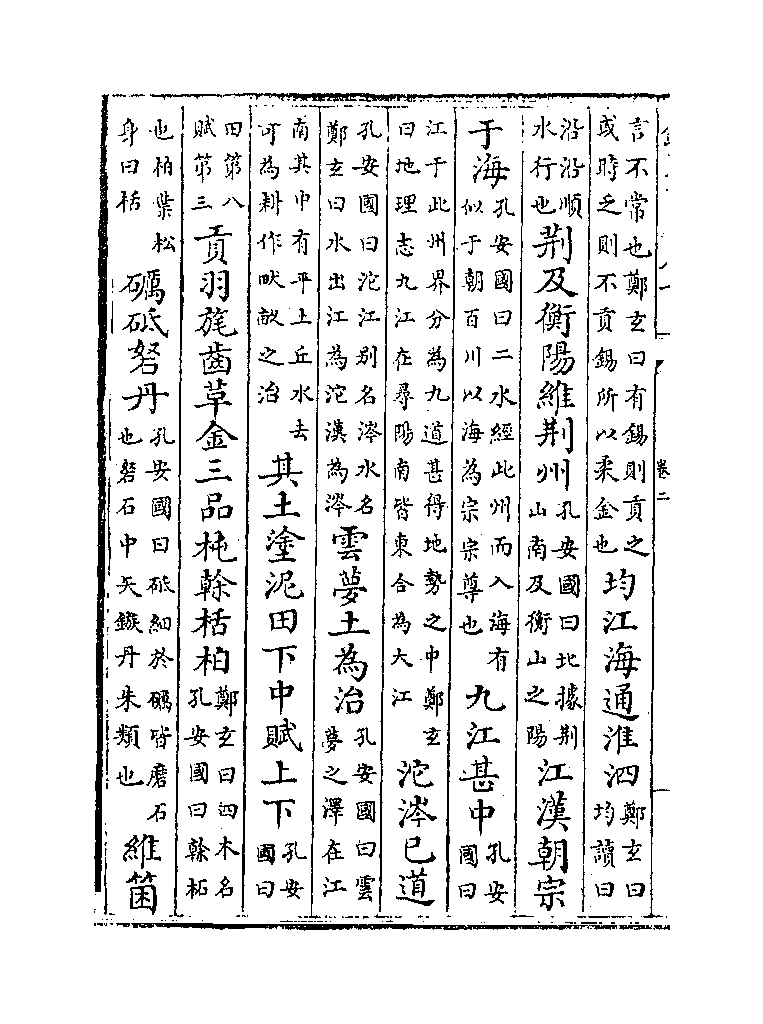 言不常也鄭玄曰有錫則貢之或時乏則不貢錫所以柔金也均江海通淮泗鄭玄曰均讀曰
沿沿順水行也荆及衡陽維荆州孔安國曰北據荆山南及衡山之陽江漢朝宗
于海孔安國曰二水經此州而入海有似于朝百川以海為宗宗尊也九江甚中孔安國曰
江于此州界分為九道甚得地勢之中鄭玄曰地理志九江在尋陽南皆東合為大江沱涔已道
孔安國曰沱江别名涔水名鄭玄曰水出江為沱漢為涔雲夢土為治孔安國曰雲夢之澤在江
南其中有平土丘水去可為耕作畎畝之治其土塗泥田下中賦上下孔安國曰
田第八賦第三貢羽旄齒草金三品杶榦栝柏鄭玄曰四木名孔安國曰榦柘
也柏葉松身曰栝礪砥砮丹孔安國曰砥細於礪皆磨石也砮石中矢鏃丹朱類也維箘
卷二